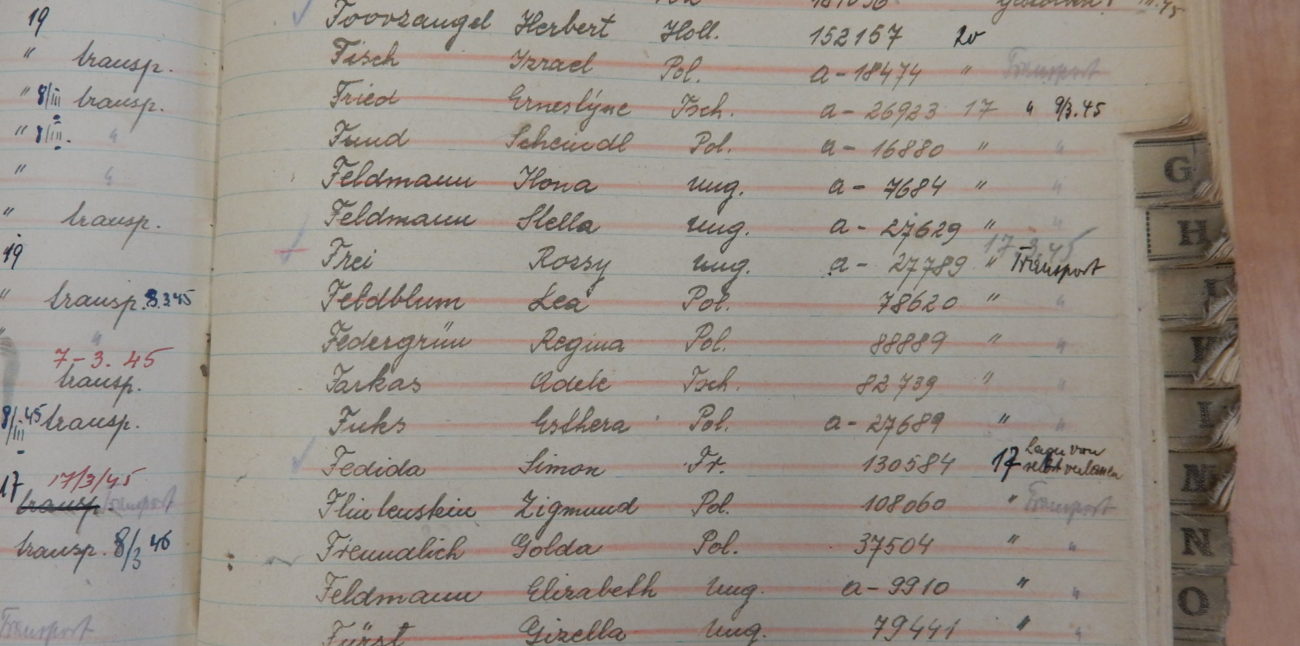 19
" transp.
" 8/III transp.
" 8/III. "
" "
" transp.
19
" transp. 8.3.45
" "
7-3. 45
transp.
8/III 45 transp.
17/3/45
17 transp. Transport
transp. 8/3 46
Transport
Herbert Holl. 152157 20
Fisch Izrael Pol. a-18474 " Transport
Fried Ernestyne Tsch. a-26923 17 " 9/3.45
Fund Scheindl Pol. a-16880 " "
Feldmann Ilona Ung. a-7684 " "
Feldmann Stella Ung. a-27629 " "
17.3.45
Frei Rozsy Ung. a-27789 " Transport
Feldblum Lea Pol. 78620 " "
Federgrün Regina Pol. 88889 " "
Farkas Adele Tsch. 82739 " "
Fuks Esthera Pol. a-27689 " "
Fedida Simon Fr. 130584 17 Lager von selbst verlassen
Zigmund Pol. 108060 " Transport
Freundlich Golda Pol. 37504 " "
Feldmann Elizabeth Ung. a-9910 " "
Fürst Gizella Ung. 79441 " "
G
H
N
O